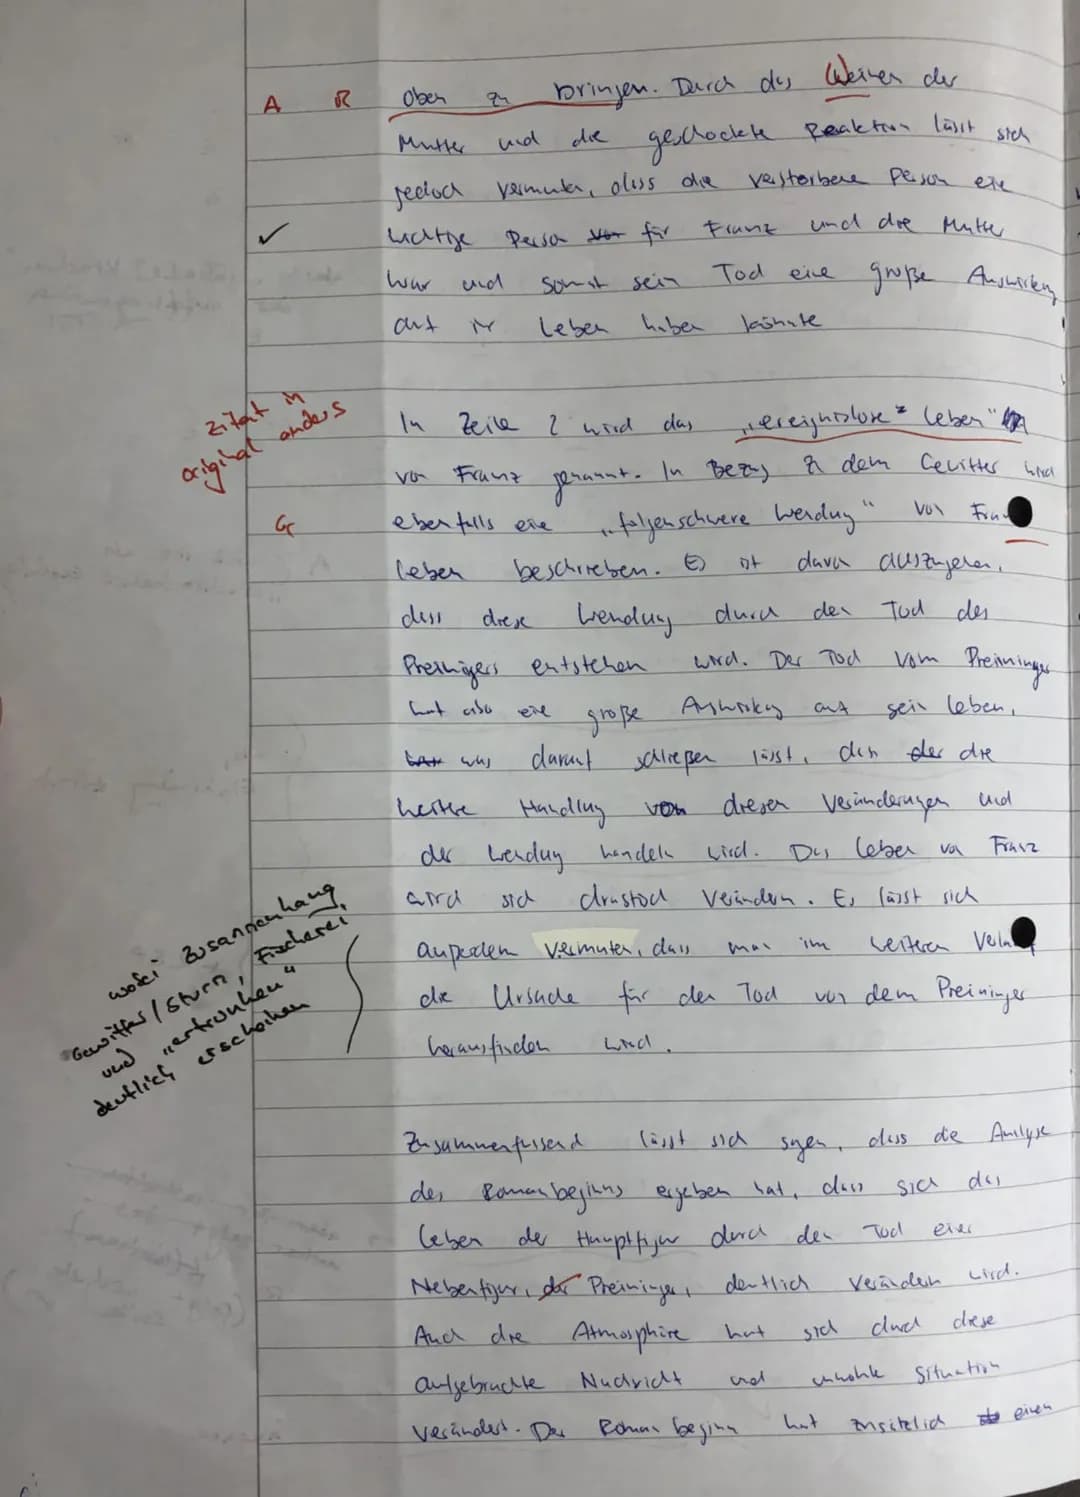 A R oben zu bringen. Durch das Weinen der
Mutter und die geschockte Reaktion lässt sich
jedoch vermuten, dass die verstorbene Person eine
✓ wichtige Person für Franz und die Mutter
war und somit sein Tod eine große Auswirkung
auf ihr Leben haben könnte
Zitat in
original anders
In Zeile 2 wird das „ereignislose" Leben"
von Franz genannt. In Bezug zu dem Gewitter wird
G ebenfalls eine „folgenschwere Wendung" von
Leben beschrieben. Es ist davon auszugehen,
dass diese Wendung durch den Tod des
Preiningers entstehen wird. Der Tod vom Preininger
hat also eine große Auswirkung auf sein Leben,
was darauf schließen lässt, dass die
weitere Handlung von diesen Veränderungen und
der Wendung handeln wird. Das Leben von Franz
wird sich drastisch verändern. Es lässt sich
außerdem vermuten, dass man im weiteren
die Ursache für den Tod von dem Preininger
herausfinden wird.
wobei Zusammenhang
Gewitter/Sturm, Fischerei
und „ertrunken"
deutlich erscheinen
Zusammenfassend lässt sich sagen, dass die Analyse
des Romanbeginns ergeben hat, dass sich das
Leben der Hauptfigur durch den Tod einer
Nebenfigur, der Preininger, deutlich verändern wird.
Auch die Atmosphäre hat sich durch diese
aufgebrachte Nachricht und Situation
verändert. Der Romanbeginn hat zusätzlich einen